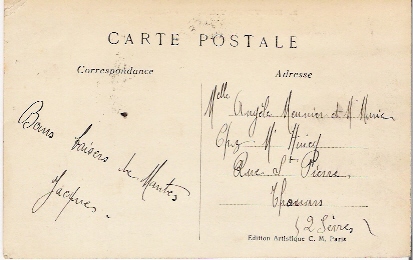 CARTE POSTALE
Correspondance
Adresse
Bons baisers de Mantes
Jacques.
Melle Angèle Meunier et Mme Marie
Chez Mr
Rue St Pierre
Thouars
(2 Sèvres)
Edition Artistique C. M. Paris